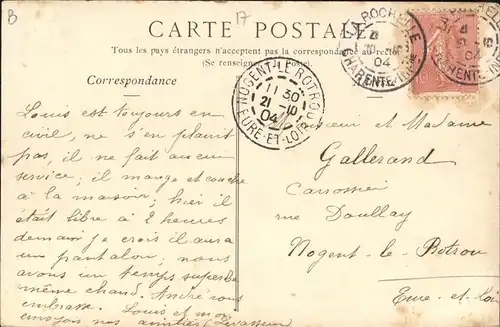 B
17
CARTE POSTALE
Tous les pays étrangers n'acceptent pas la correspondance au recto
(Se renseigner à la Poste).
Correspondance
LA ROCHELLE
04
CHARENTE-INF
LA ROCHELLE
04
CHARENTE-INF
NOGENT-LE-ROTROU
11 30
21 -10
04
EURE-ET-LOIR
Louis est toujours en
civil, ne s'en plaint
pas, il ne fait aucun
service; il mange et couche
à la maison; hier il
était libre à 2 heures
demain je crois il aura
un pantalon; nous
avons un temps superbe
même chaud. André nous
embrasse. Louis et moi
envoyons nos amitiés
Monsieur et Madame
Gallerand
Carrossier
rue Doullay
Nogent-le-Rotrou
Eure-et-Loir